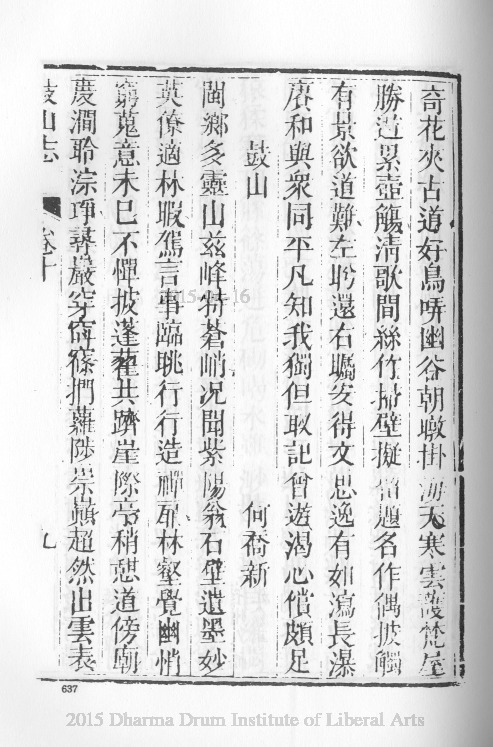 奇花夾古道好鳥哢幽谷朝暾掛海天寒雲護梵屋
勝迹累壺觴清歌間絲竹掃壁擬留題名作偶披觸
有景欲道難左盻還右矚安得文思逸有如瀉長瀑
賡和與衆同平凡知我獨但取記曾遊渴心償頗足
鼓山 何喬新
閩鄉多靈山兹峰特蒼峭况聞紫陽翁石壁遺墨妙
英僚適林暇駕言事臨眺行行造禪扉林壑覺幽悄
窮蒐意未已不憚披蓬藋共躋崖際亭稍憇道傍廟
度澗聆淙琤尋巖穿窈篠捫蘿陟崇巔超然出雲表
鼓山志 卷十 九
637
2015 Dharma Drum Institute of Liberal Arts